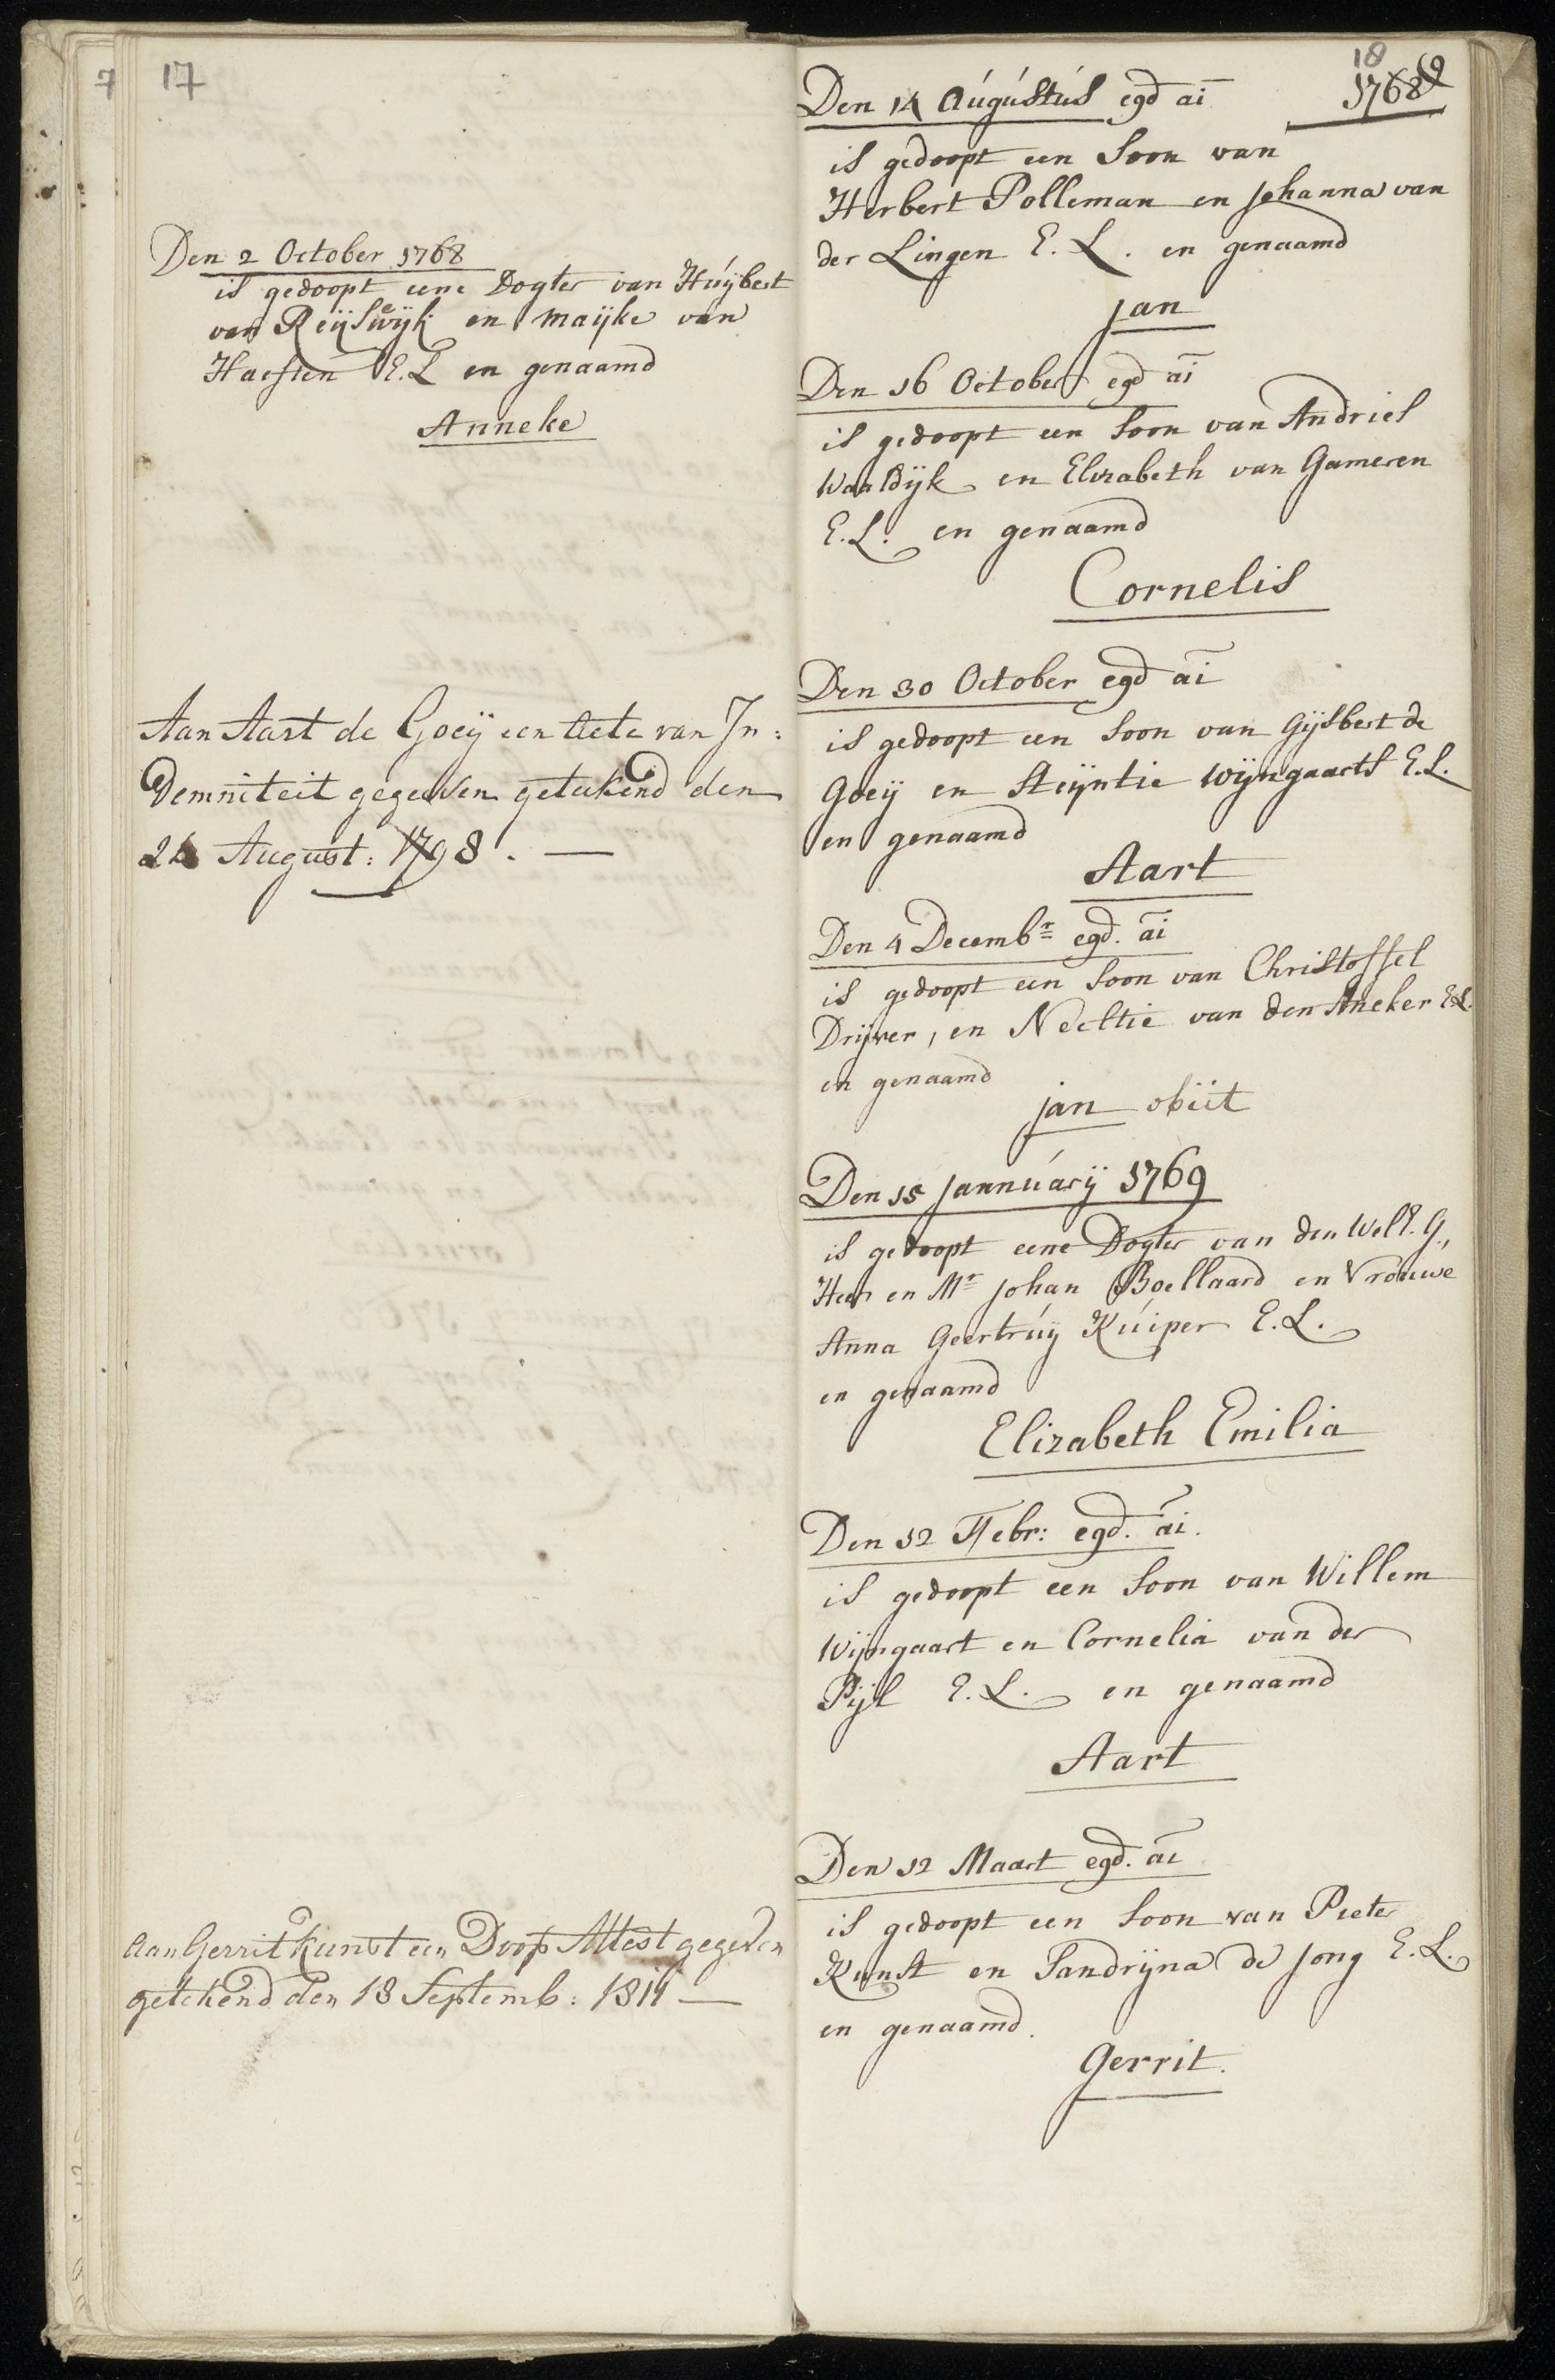 7 17
Den 2 October 1768
is gedoopt eene Dogter van Huijbert
van Reijswijk en Maijke van
Haeften E. L en genaamd
Anneke
Aan Aart de Goeij een Acte van In:
demniteit gegeven getekend den
August: 1798. —
Aan Gerrit Kunst een Doop Attest gegeven
getekend den 18 Septemb: 1811 —
18
Den 14 Augustus egd ai 1768
is gedoopt een Soon van
Herbert Polleman en Johanna van
der Lingen E. L. en genaamd
Jan
Den 16 October egd ai
is gedoopt een Soon van Andries
Waaldijk en Elizabeth van Gameren
E. L. en genaamd
Cornelis
Den 30 October egd ai
is gedoopt een Soon van Gijsbert de
Goeij en Steijntie Wijngaarts E. L.
en genaamd
Aart
Den 4 Decembr egd. ai
is gedoopt een Soon van Christoffel
Drijver, en Neeltie van den Aneker E L.
en genaamd
Jan obiit
Den 15 Jannuarij 1769
is gedoopt eene Dogter van den Well. G.,
Heer en Mr Johan Boellaard en Vrouwe
Anna Geertruij Kuiper E. L.
en genaamd
Elizabeth Emilia
Den 12 Febr: egd. ai.
is gedoopt een Soon van Willem
Wijngaart en Cornelia van der
Pijl E. L. en genaamd
Aart
Den 12 Maart egd. ai
is gedoopt een Soon van Pieter
Kunst en Sandrijna de Jong E. L.
en genaamd.
Gerrit.